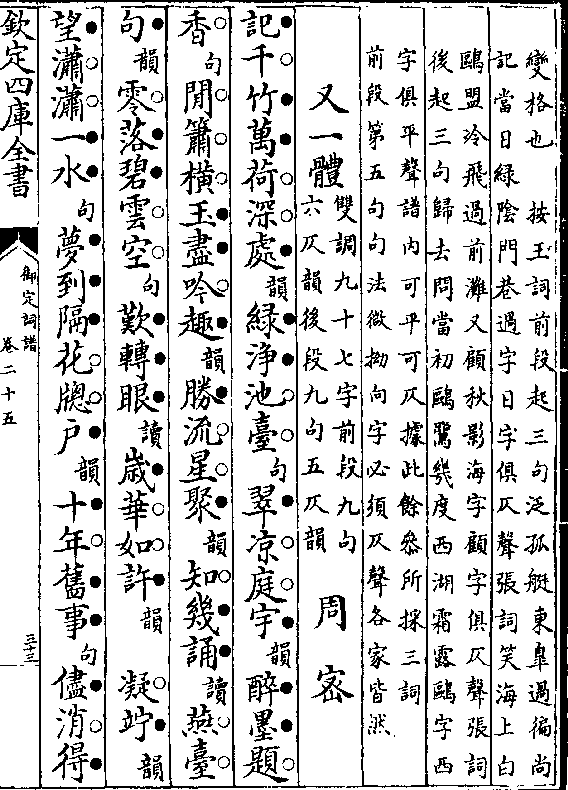 變格也　按王詞前段起三句泛孤艇東臯過徧尚
記當日緑陰門巷過字日字俱仄聲張詞笑海上白
鷗盟冷飛過前灘又顧秋影海字顧字俱仄聲張詞
後起三句歸去問當初鷗鷺幾度西湖霜露鷗字西
字俱平聲譜内可平可仄據此餘叅所採三詞
前段第五句句法微拗向字必須仄聲各家皆然
又一體　雙調九十七字前段九句
六仄韻後段九句五仄韻　周密
記千竹萬荷深處韻緑浄池臺句翠凉庭宇韻醉墨題
香句閒簫橫玉盡吟趣韻勝流星聚韻知幾誦讀燕臺
句韻零落碧雲空句歎轉眼讀歳華如許韻　凝竚韻
望瀟瀟一水句夢到隔花牕戶韻十年舊事句儘消得
欽定四庫全書
御定詞譜
卷二十五
三十三